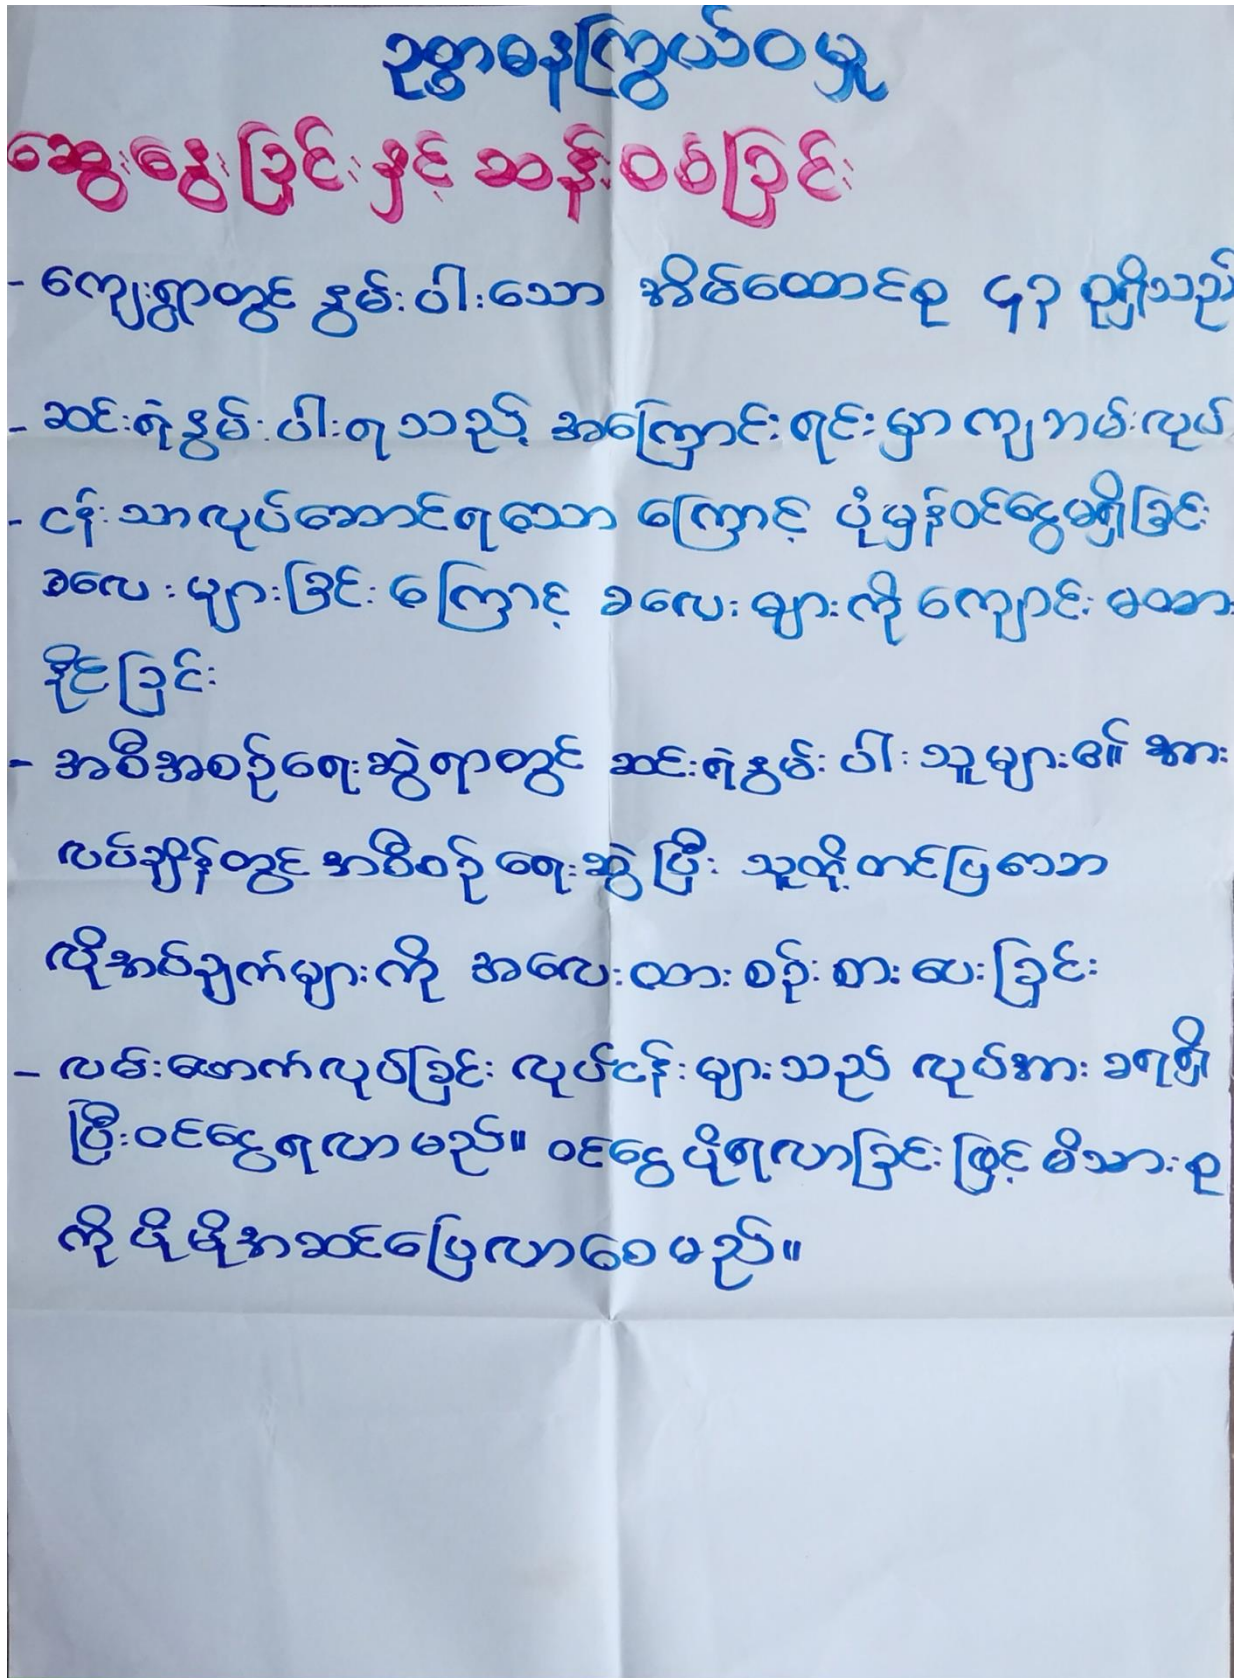 ဥစ္စာဓနကြွယ်ဝမှု
ဆွေးနွေးခြင်းနှင့် ဆန်းစစ်ခြင်း
- ကျေးရွာတွင် နွမ်းပါးသော အိမ်ထောင်စု ၄၃ စုရှိသည်
- ဆင်းရဲနွမ်းပါးရသည့် အကြောင်းရင်းမှာ ကျဘမ်းလုပ်
- ငန်းသာလုပ်ဆောင်ရသော ကြောင့် ပုံမှန်ဝင်ငွေမရှိခြင်း
ခလေးများခြင်းကြောင့် ခလေးများကို ကျောင်းမထား
နိုင်ခြင်း
- အစီအစဉ်ရေးဆွဲရာတွင် ဆင်းရဲနွမ်းပါးသူများ၏ အား
လပ်ချိန်တွင် အစီစဉ်ရေးဆွဲပြီး သူတို့တင်ပြသော
လိုအပ်ချက်များကို အလေးထားစဉ်းစားပေးခြင်း
- လမ်းဖောက်လုပ်ခြင်း လုပ်ငန်းများသည် လုပ်အားခရရှိ
ပြီးဝင်ငွေရလာမည်။ ဝင်ငွေပိုရလာခြင်းဖြင့် မိသားစု
ကိုပိုမိုအဆင်ပြေလာစေမည်။